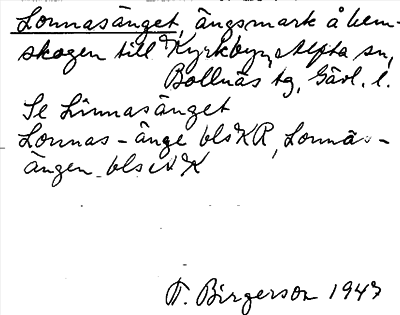 Lonnasänget, ängsmark å hem-
skogen till Kyrkbyn, Alfta sn,
Bollnäs tg, Gävl. l.
Se Linnasänget
Lonnas-änge bls KR, Lonnäs-
ängen bls K
T. Birgerson 1943